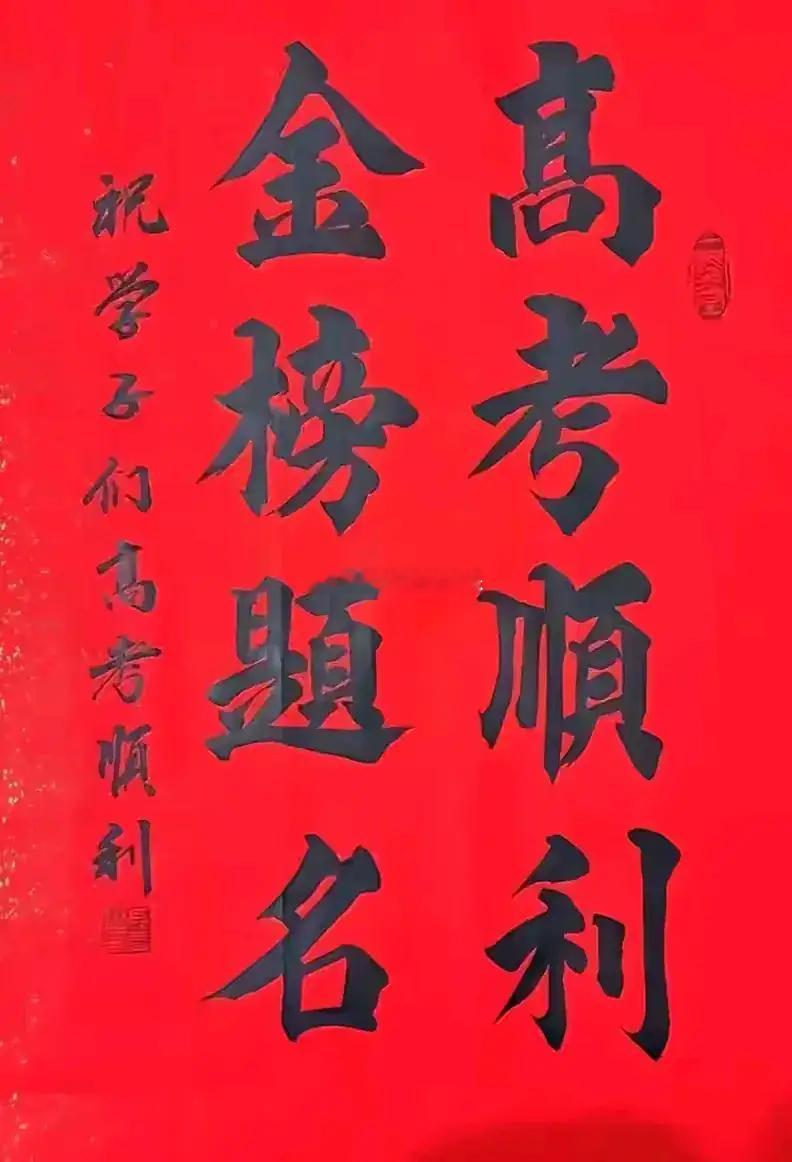 髙考順利
金榜題名
祝学子们高考顺利